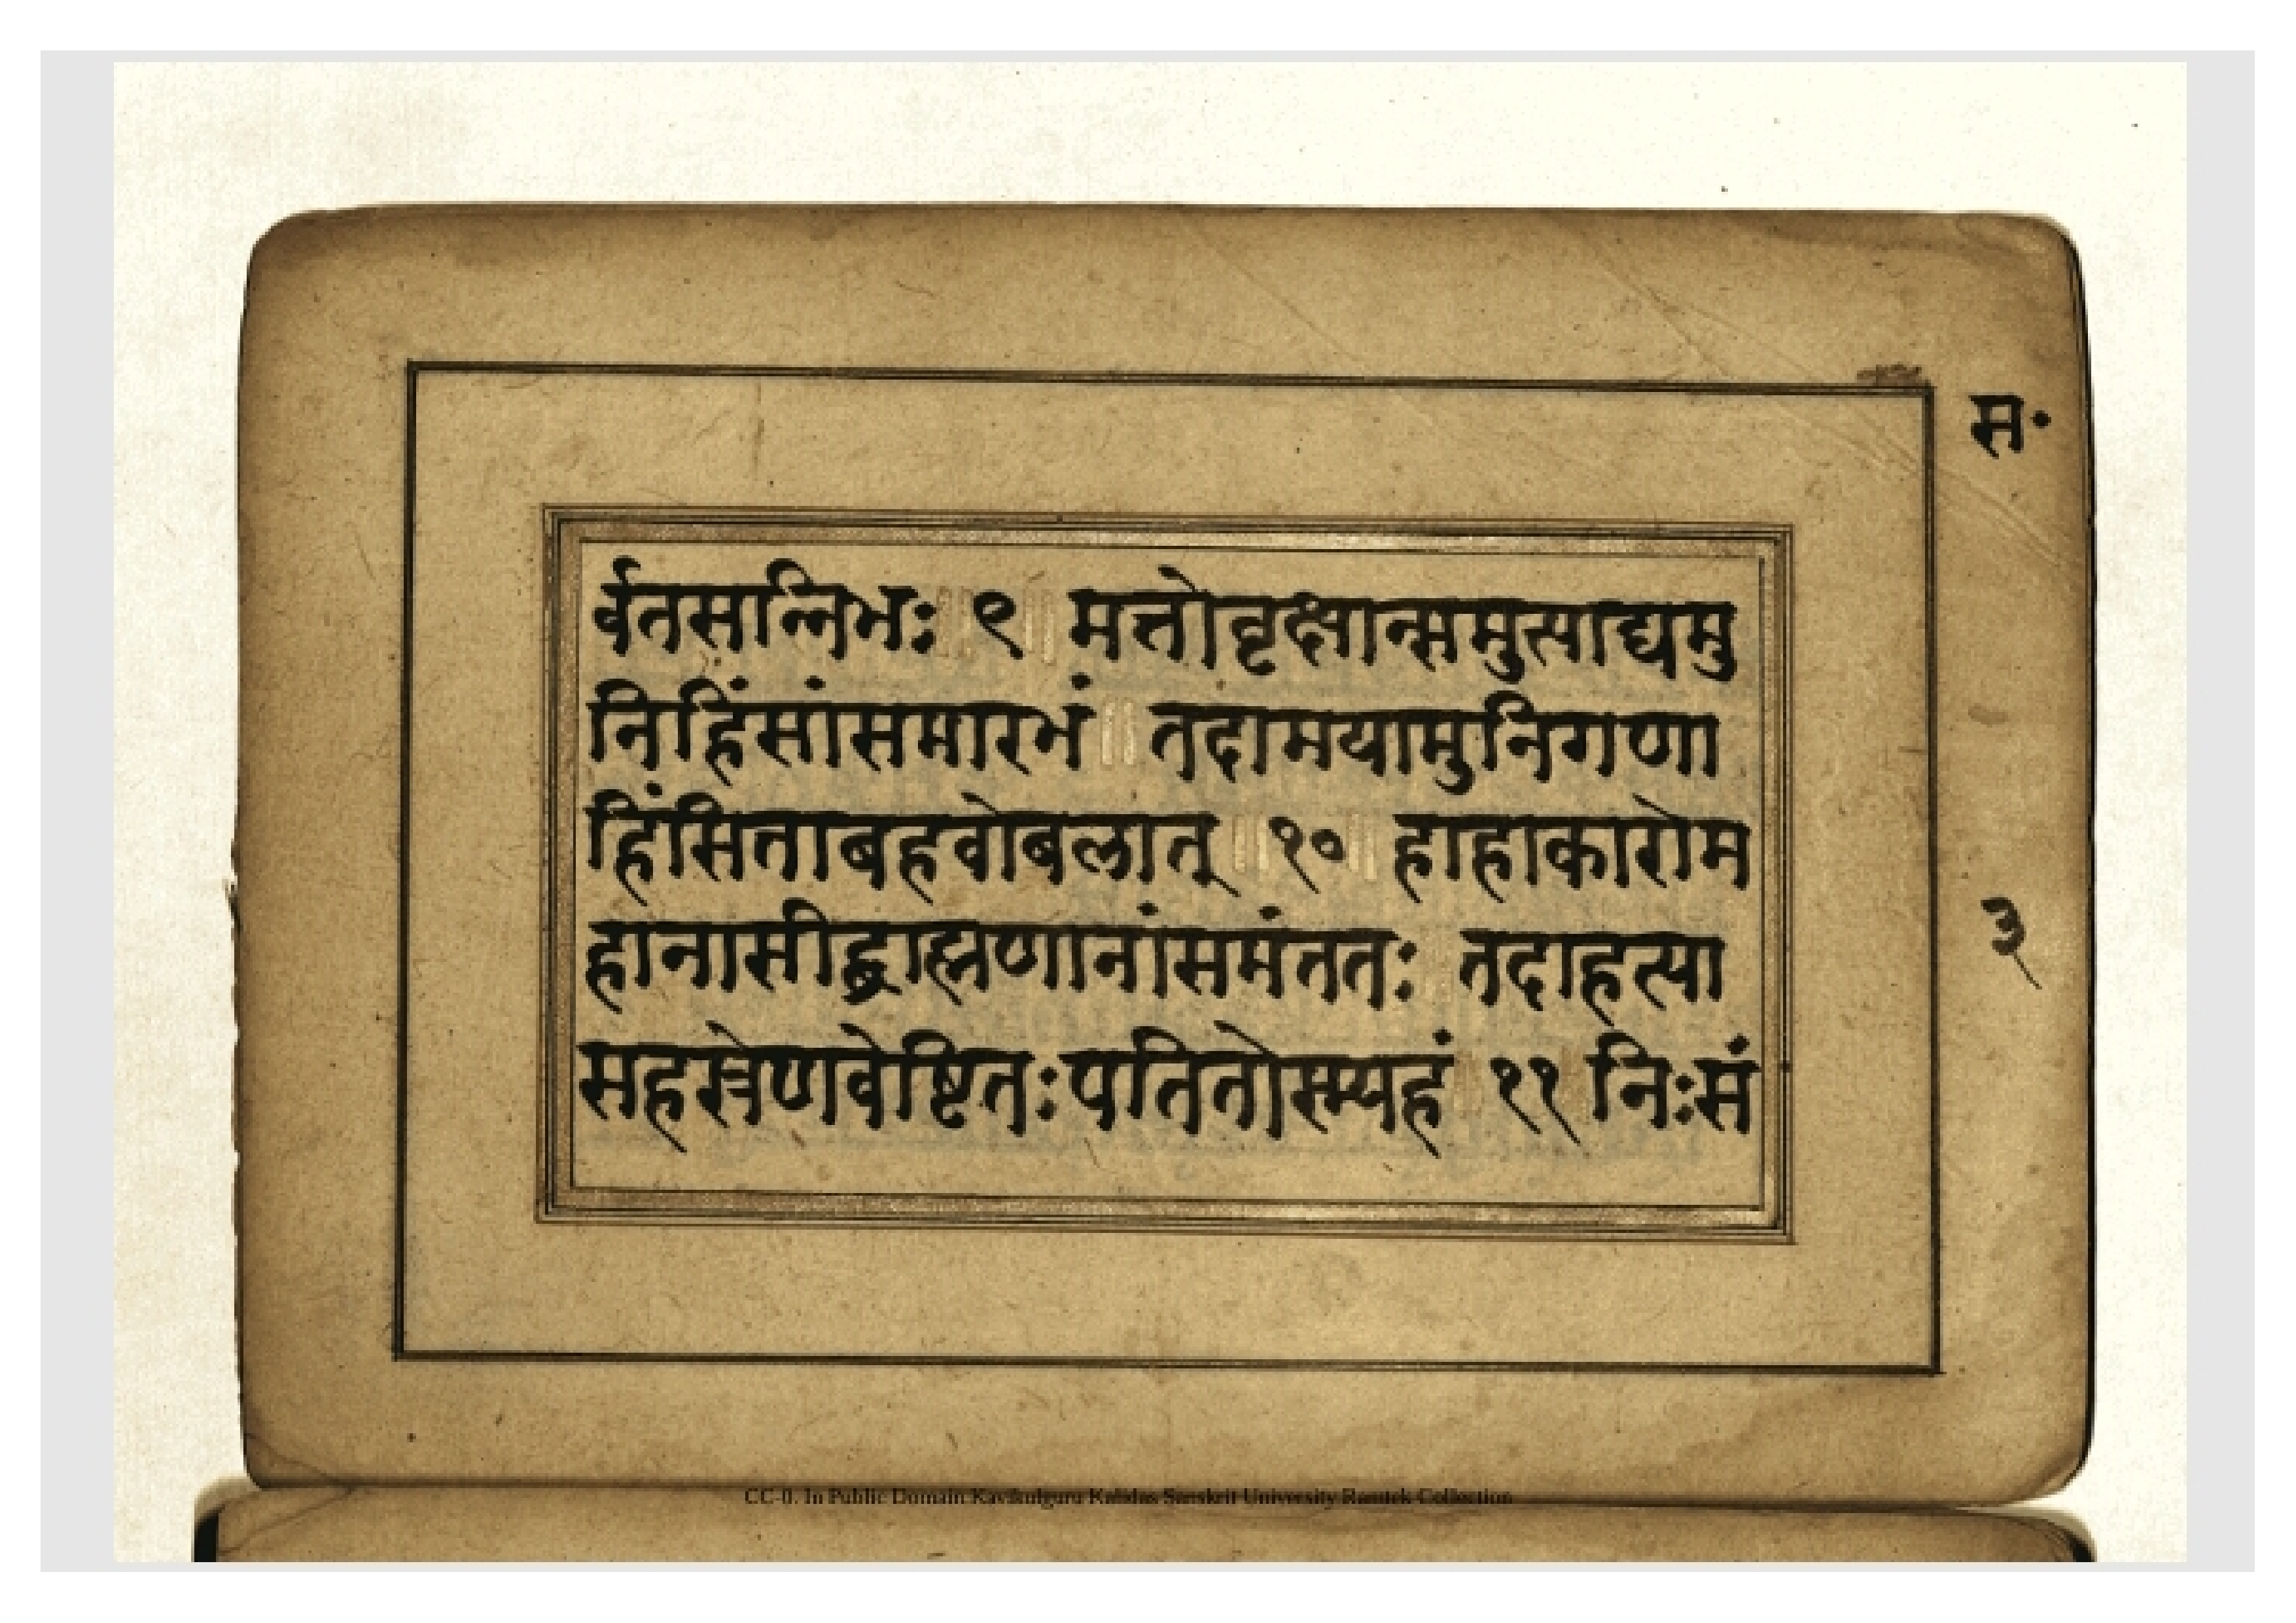 स॰
र्वतसन्निभः ९ ॥ मत्तोवृक्षान्समुत्साद्यमु
निहिंसांसमारभं ॥ तदामयामुनिगणा
हिंसिताबहवोबलात् ॥ १० ॥ हाहाकारोम
हानासीद्ब्राह्मणानांसमंततः तदाहत्या
सहस्रेणवेष्टितःपतितोस्म्यहं ११ निःसं
३
CC-0. In Public Domain Kavikulguru Kalidas Sanskrit University Ramtek Collection